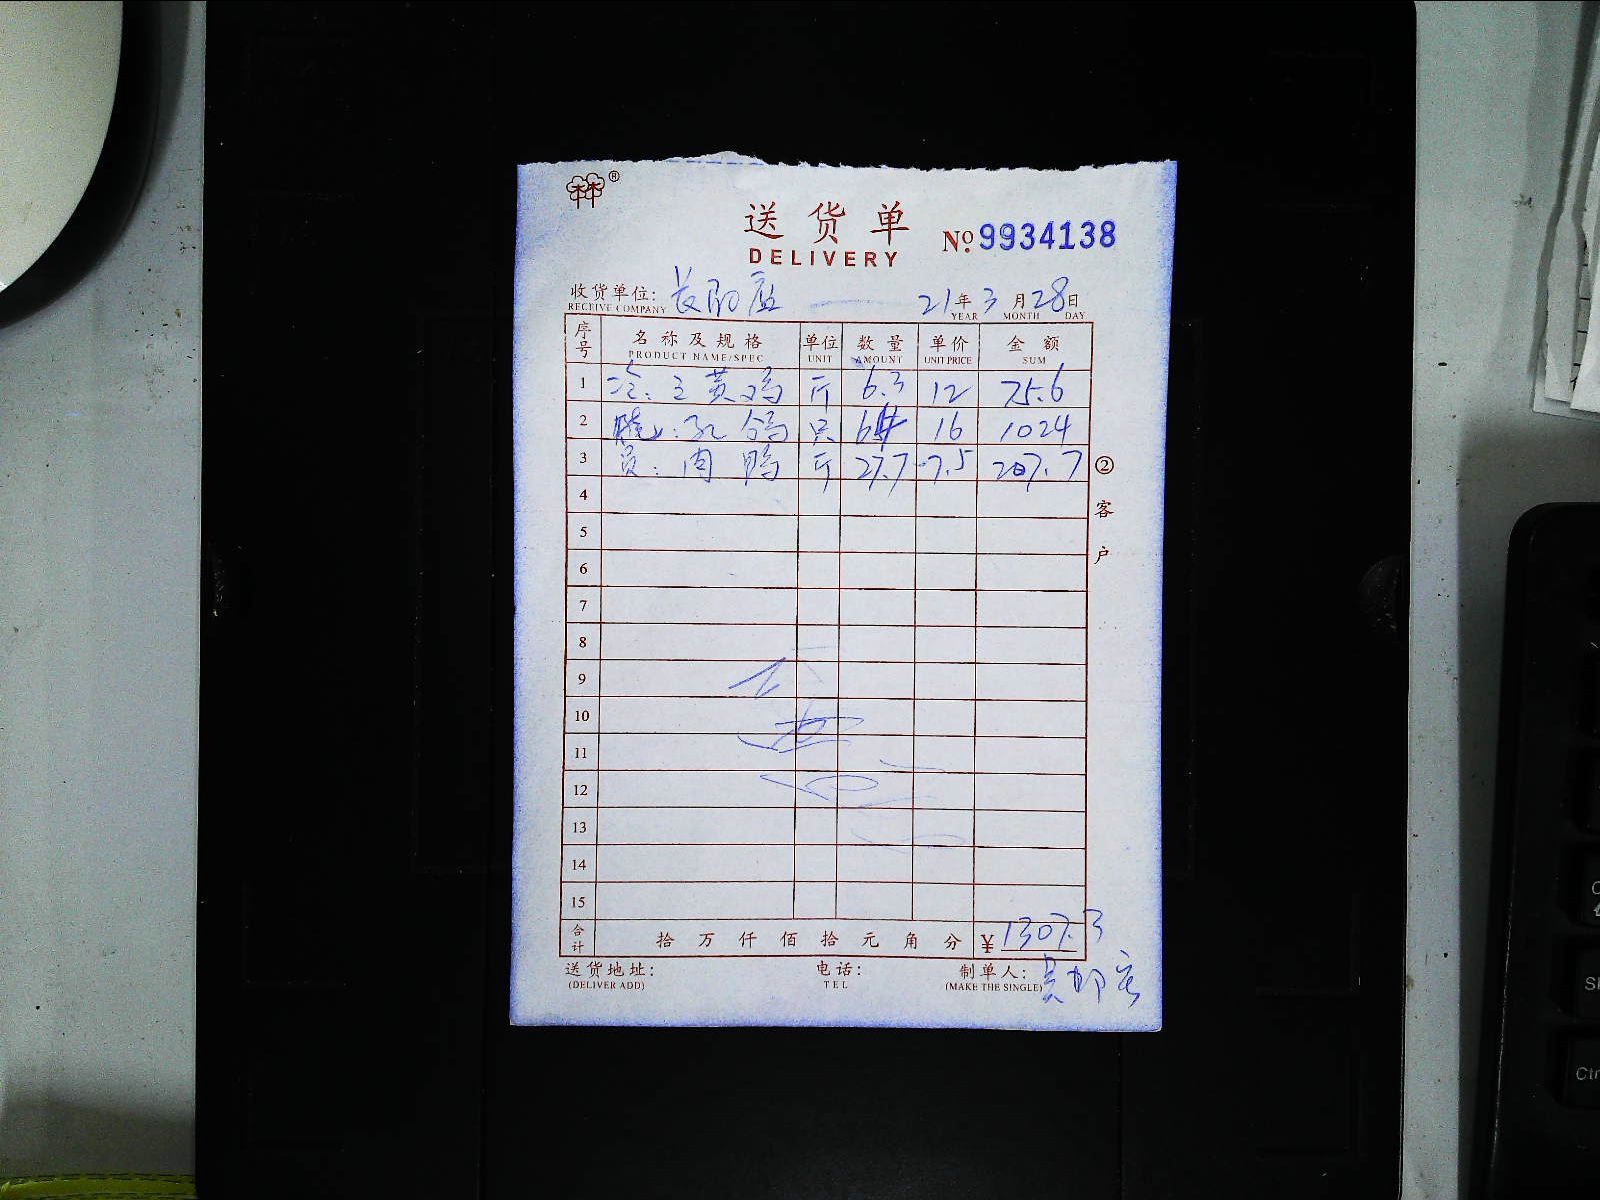 林林®
送货单
DELIVERY
№ 9934138
收货单位: 21年3月28日
RECEIVE COMPANY YEAR MONTH DAY
序号 名称及规格 单位 数量 单价 金额
PRODUCT NAME/SPEC UNIT AMOUNT UNIT PRICE SUM
1 冷: 三黄鸡 斤 6.3 12 75.6
2 烧: 乳鸽 只 64 16 1024
3 员: 肉鸭 斤 27.7 7.5 207.7
4
5
6
7
8
9
10
11
12
13
14
15
合计 拾万仟佰拾元角分 ¥1307.3
送货地址: 电话: 制单人:
(DELIVER ADD) TEL (MAKE THE SINGLE)
②客户
Ctr